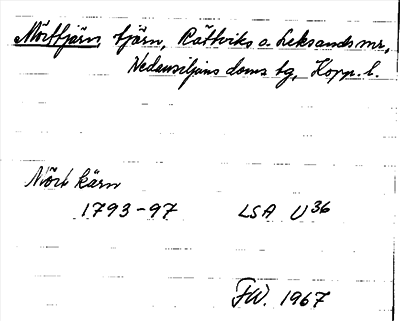 Mörttjärn, tjärn, Rättviks o. Leksands snr,
Nedansiljans doms tg, Kopp. l.
Mört kärn
1793-97 LSA U36
FW. 1967